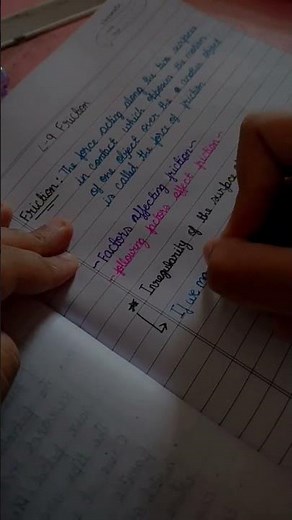 L-9 Friction
Friction: The force acting along the two surfaces
in contact which opposes the motion
of one object over the a another object
is called the force of friction
- Factors affecting friction -
following factors affect friction -
* Irregularity of the surface
If we